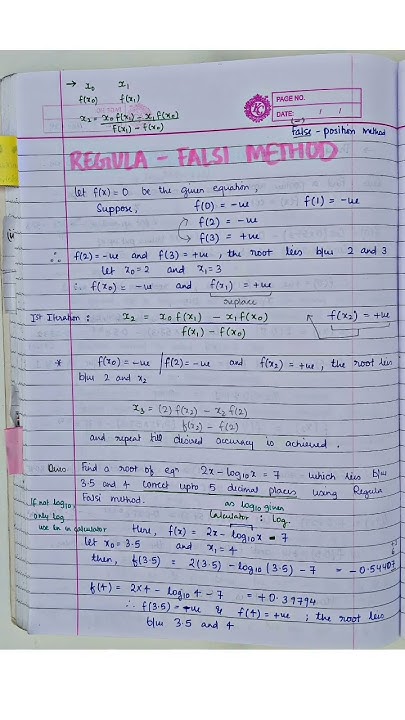 → x₀ x₁
f(x₀) f(x₁)
x₂ = x₀ f(x₁) - x₁ f(x₀)
f(x₁) - f(x₀)
PAGE NO.
DATE: / /
False - position method
REGULA - FALSI METHOD
let f(x) = 0 be the given equation,
Suppose, f(0) = -ue f(1) = -ue
f(2) = -ue
f(3) = +ue
∴ f(2) = -ue and f(3) = +ue, the root lies b/w 2 and 3
let x₀ = 2 and x₁ = 3
∴ f(x₀) = -ue and f(x₁) = +ue
replace
Ist Iteration : x₂ = x₀ f(x₁) - x₁ f(x₀) f(x₂) = +ue
f(x₁) - f(x₀)
* f(x₀) = -ue / f(2) = -ue and f(x₂) = +ue, the root lies
b/w 2 and x₂
x₃ = (2) f(x₂) - x₂ f(2)
f(x₂) - f(2)
and repeat till desired accuracy is achieved.
Ques. Find a root of eqⁿ 2x - log₁₀x = 7 which lies b/w
3.5 and 4 correct upto 5 decimal places using Regula
Falsi method.
as log₁₀ given
Calculator : log
If not log₁₀,
only log
use ln in calculator
Here, f(x) = 2x - log₁₀x - 7
let x₀ = 3.5 and x₁ = 4
then, f(3.5) = 2(3.5) - log₁₀(3.5) - 7 = -0.54407
f(4) = 2x4 - log₁₀ 4 - 7 = +0.39794
∴ f(3.5) = -ue & f(4) = +ue ; the root lies
b/w 3.5 and 4